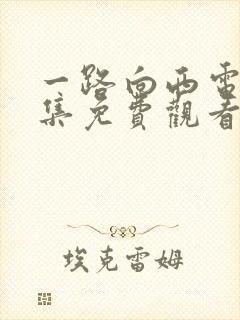 一路向西電
集免費觀看
埃克雷姆